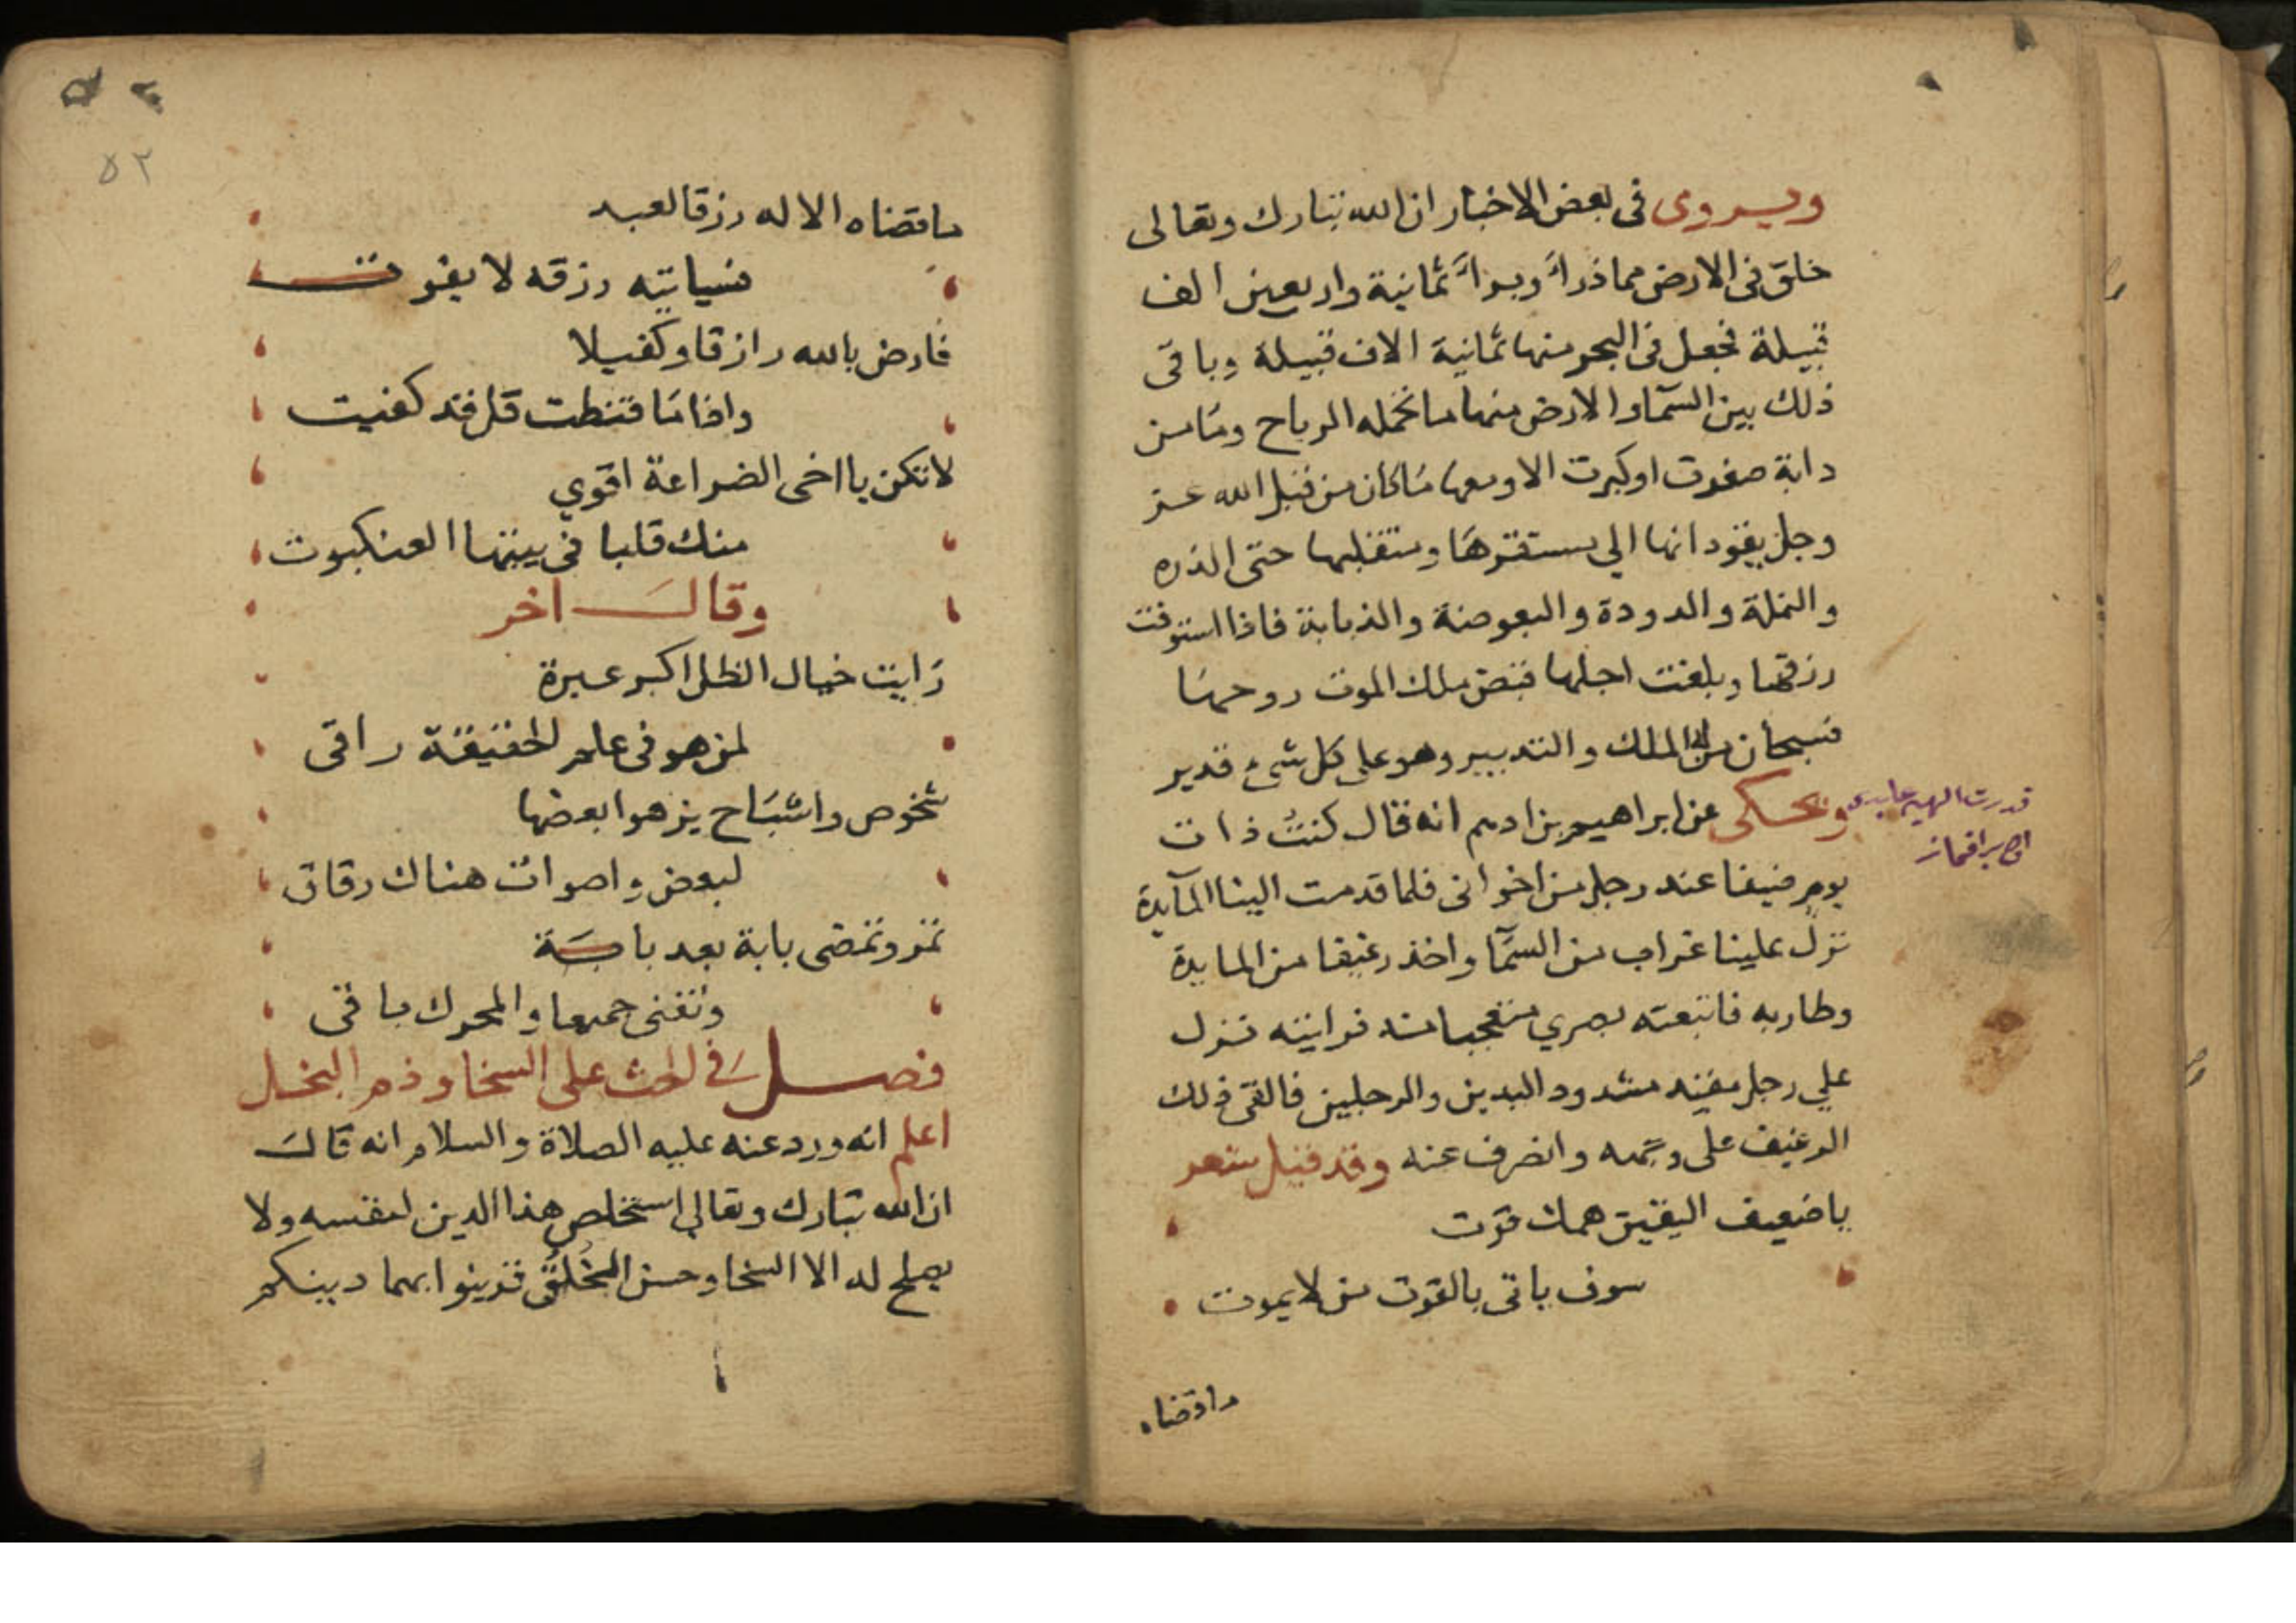 ويروى فى بعض الاخبار ان الله تبارك وتعالى
خلق فى الارض مما ذرأ وبرأ ثمانية واربعين الف
قبيلة فجعل فى البحر منها ثمانية الاف قبيلة وباقى
ذلك بين السمآ والارض منها ما تحمله الرياح وما من
دابة صغرت او كبرت الا ومعها ما كان من قبل الله عز
وجل يقودانها الي مستقرها ومتقلبها حتى الذره
والنملة والدودة والبعوضة والذبابة فاذا استوفت
رزقها وبلغت اجلها قبض ملك الموت روحها
فسبحان من له الملك والتدبير وهو على كل شىء قدير
ويحكى عن ابراهيم بن ادهم انه قال كنت ذات
قدرت الهيه
يوم ضيفا عند رجل من اخوانى فلما قدمت الينا المآيدة
نزل علينا غراب من السمآ واخذ رغيفا من المايدة
وطار به فاتبعته بصري متعجبا منه فرايته نزل
علي رجل مقيد مشدود اليدين والرجلين فالقى ذلك
الرغيف على وجهه وانصرف عنه وقد قيل شعر
يا ضعيف اليقين همك قوت
سوف ياتى بالقوت من لا يموت
ماقضاه
٥٢
ما قضاه الاله رزقا لعبد
فسياتيه رزقه لا يفوت
فارض بالله رازقا وكفيلا
واذا ما قنطت قل قد كفيت
لا تكن يا اخى الضراعة اقوي
منك قلبا فى بيتها العنكبوت
وقال اخر
رايت خيال الظل اكبر عبرة
لمن هو فى علم الحقيقة راقى
شخوص واشباح يزهوا بعضها
لبعض واصوات هناك رقاق
تمر وتمضى بابة بعد بابة
وتفنى جميعا والمحرك باقى
فصل فى الحث على السخا وذم البخل
اعلم انه ورد عنه عليه الصلاة والسلام انه قال
ان الله تبارك وتعالي استخلص هذا الدين لنفسه ولا
يصلح له الا السخا وحسن الخُلُق فزينوا بهما دينكم